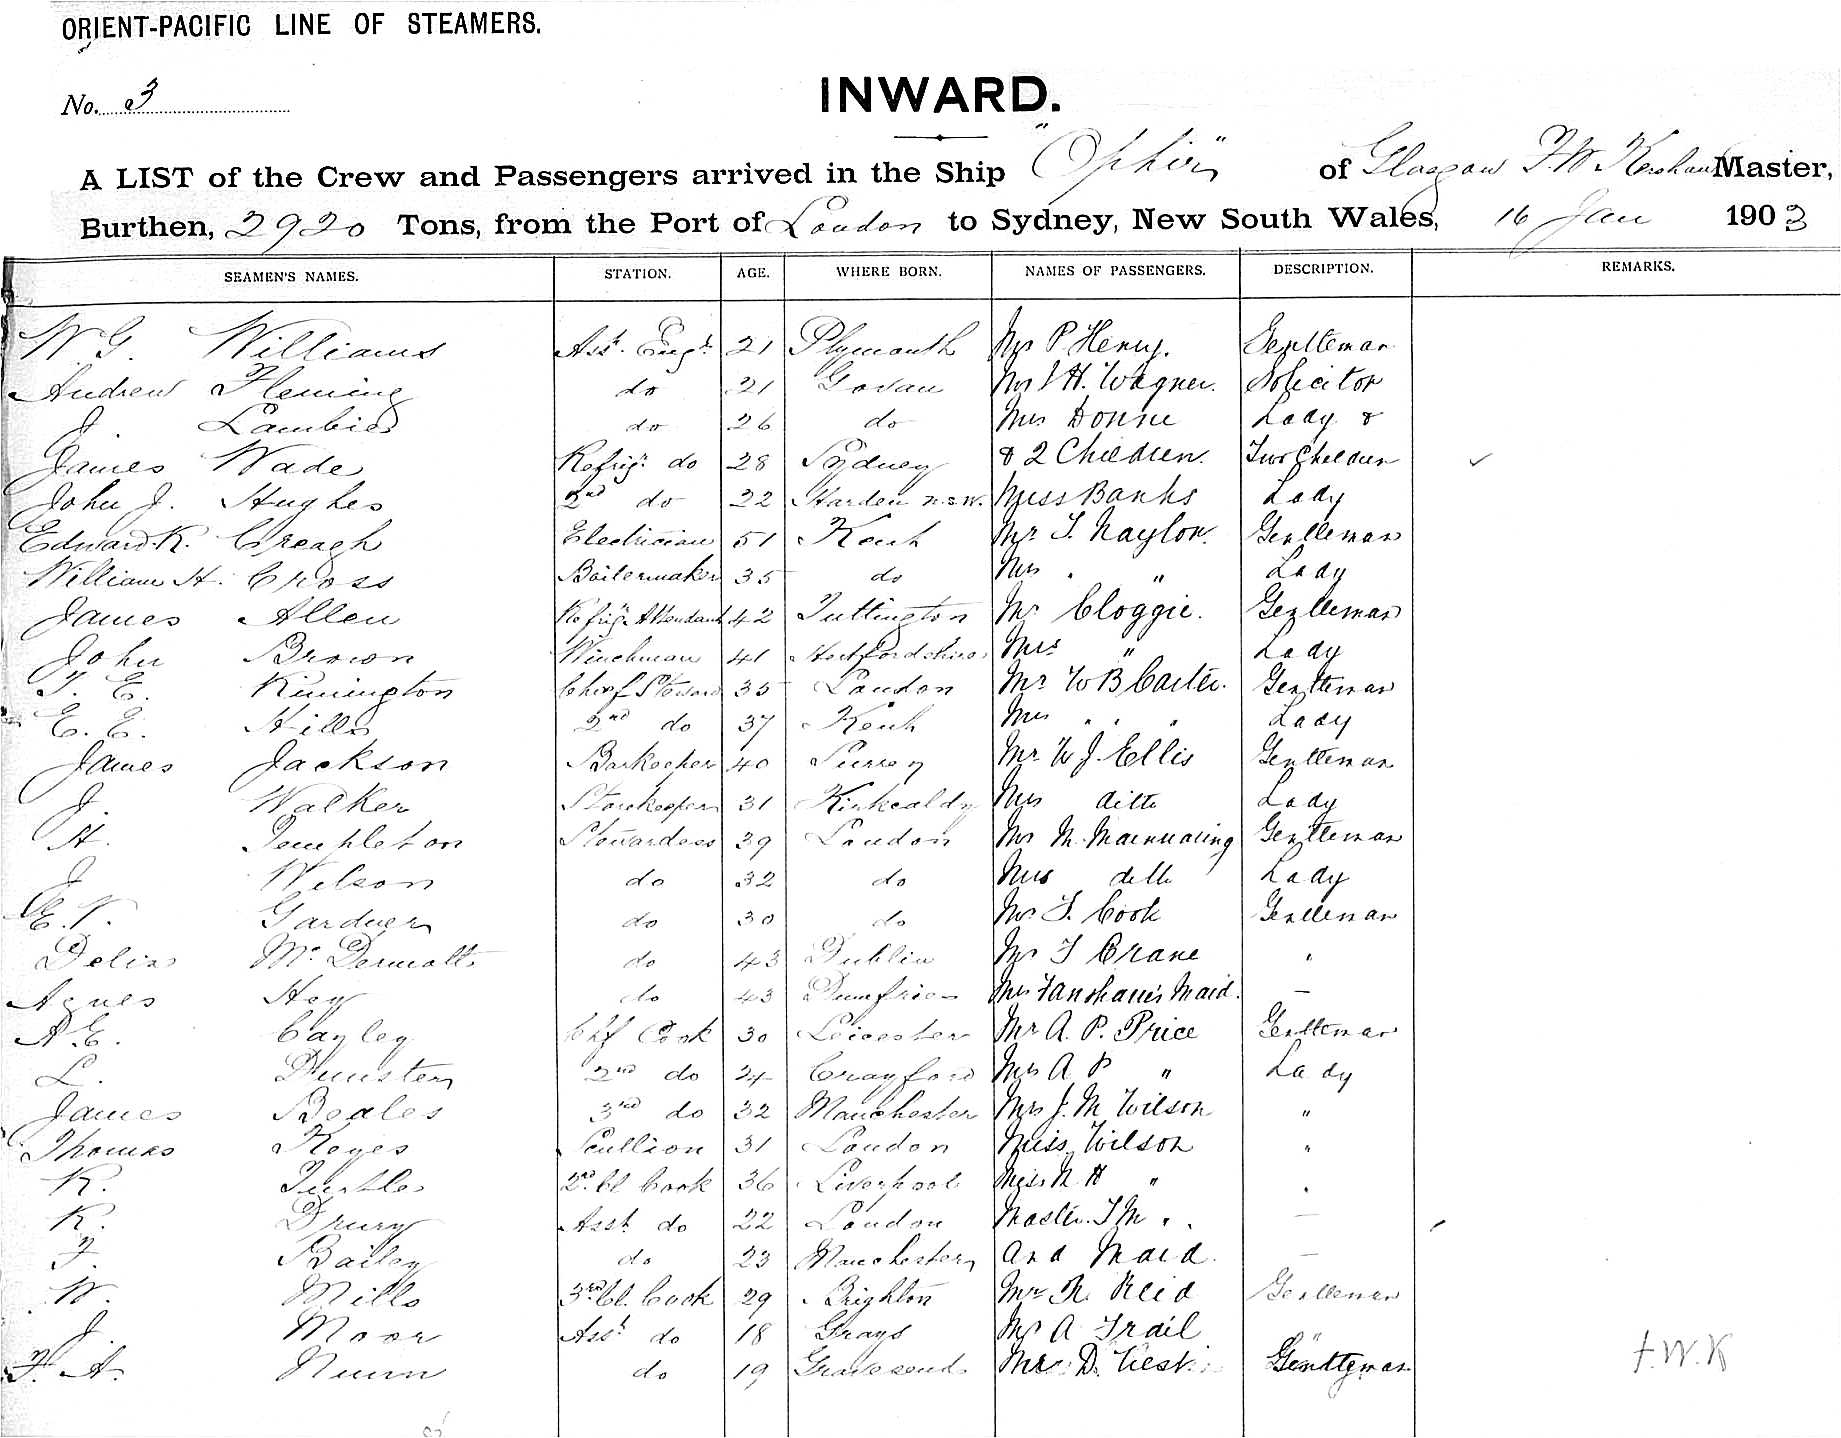 ORIENT-PACIFIC LINE OF STEAMERS.
No. 3
INWARD.
A LIST of the Crew and Passengers arrived in the Ship "Ophir" of Glasgow F.W Kershaw Master,
Burthen, 2920 Tons, from the Port of London to Sydney, New South Wales, 16 Jan 1903
SEAMEN'S NAMES. STATION. AGE. WHERE BORN. NAMES OF PASSENGERS. DESCRIPTION. REMARKS.
W G. Williams Asst. Engr. 21 Plymouth Mr P Henry. Gentleman
Andrew Fleming do 21 Govan H. Wagner. Solicitor
J. Lambie do 26 do Mrs Donne Lady &
James Wade Refrigr. do 28 Sydney & 2 Children. Two Children
John J. Hughes 2nd do 22 Harden N.S.W. Miss Banks Lady
Edward K. Creagh Electrician 51 Kent Mr T. Naylor. Gentleman
William H. Cross Boilermaker 35 do Mrs " " Lady
James Allen Refrigr. Attendant 42 Tuttington Mr Cloggie. Gentleman
John Brown Winchman 41 Hertfordshire Mrs " Lady
T. E. Rimington Chief Steward 35 London Mr W B Carter. Gentleman
E. E. Hills 2nd do 37 Kent Mrs " " " Lady
James Jackson Barkeeper 40 Surrey Mr W J. Ellis Gentleman
J. Walker Storekeeper 31 Kirkcaldy Mrs ditto Lady
H. Templeton Stewardess 39 London Mr M. Mainwaring Gentleman
J. Wilson do 32 do Mrs ditto Lady
E. V. Gardner do 30 do Mr T. Cook Gentleman
Delia McDermott do 43 Dublin Mr T Crane "
Agnes Hay do 43 Dumfries Mrs Fanshawe's Maid. —
A. E. Cayley Chf Cook 30 Leicester Mr A. P. Price Gentleman
L. Dunster 2nd do 24 Crayford Mrs A P " Lady
James Beales 3rd do 32 Manchester Mrs J. M Wilson "
Thomas Keyes Scullion 31 London Miss Wilson "
K. Turtle 2nd Cl Cook 36 Liverpool Miss N H " "
K. Drury Asst do 22 London Master T M " " —
F. Bailey do 23 Manchester and Maid. —
W. Mills 3rd Cl. Cook 29 Brighton Mr R. Reid Gentleman
J. Moor Asst do 18 Grays Mr A Trail "
F. A. Nunn do 19 Gravesend Mr D. Gentleman
F.W.K